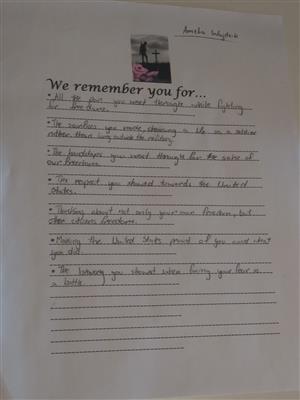 Amelia
We remember you for...
• All the pain you went through while fighting
for freedom.
• The sacrifices you made, choosing a life as a soldier
rather than living outside the military.
• The hardships you went through for the sake of
our freedom.
• The respect you showed towards the United
States.
• Thinking about not only your own freedom, but
other citizens freedoms.
• Making the United States proud of you and what
you did.
• The bravery you showed when facing your fear in
a battle.